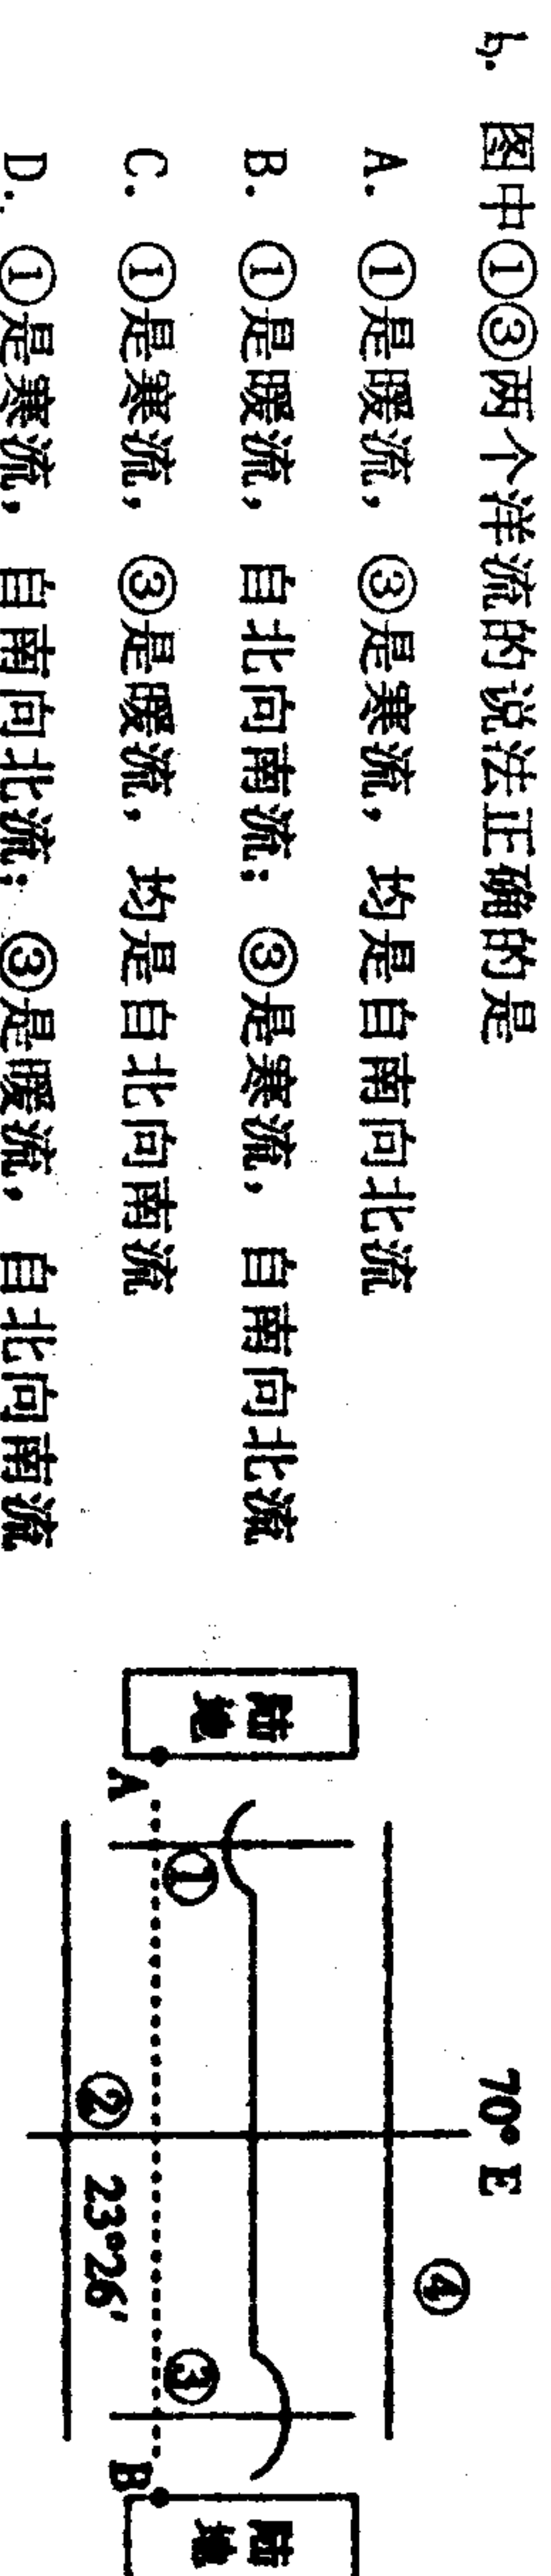 5. 图中①③两个洋流的说法正确的是
A. ①是暖流，③是寒流，均是自南向北流
B. ①是暖流，自北向南流；③是寒流，自南向北流
C. ①是寒流，③是暖流，均是自北向南流
D. ①是寒流，自南向北流；③是暖流，自北向南流
70° E
④
陆地
①
③
陆地
A
②
23°26′
B